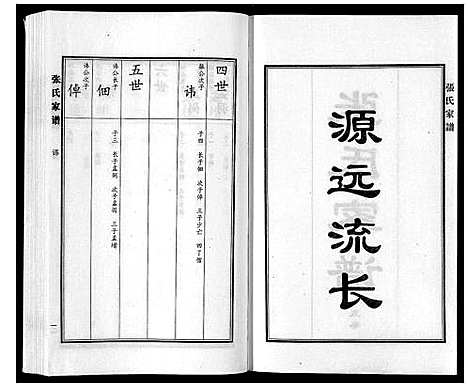 張氏家譜
源远流长
四世
磊公次子
讳
子四 长子佃 次子倬 三子少亡 四子惺
五世
讳公长子
佃
子三 长子孟 次子孟 三子孟
讳公次子
倬
张氏家谱
一